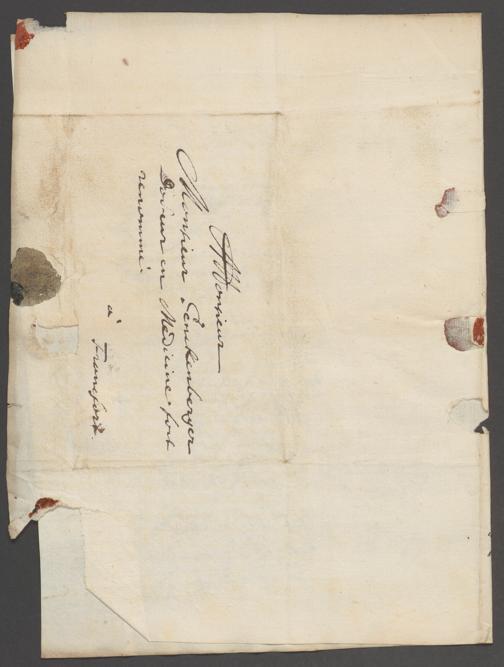 A Monsieur
Monsieur Senckenberger
Docteur en Médicine fort
renommé.
à Francfort.